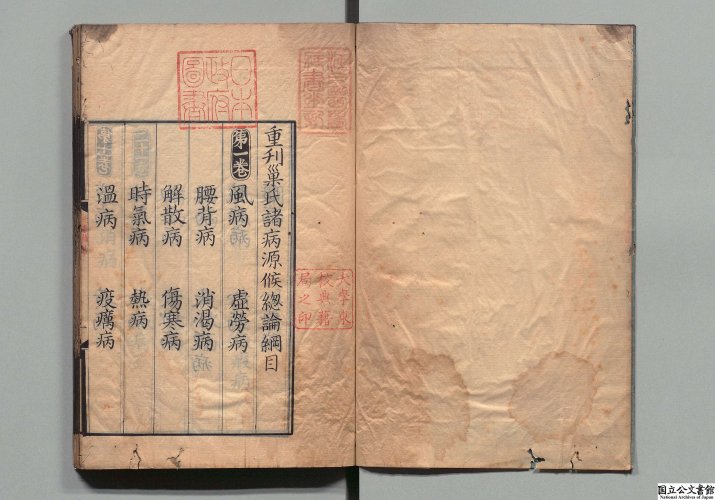 重刋巢氏諸病源候總論綱目
第一卷
風病 虛勞病
腰背病 消渴病
解散病 傷寒病
時氣病 熱病
溫病 疫癘病
日本
政府
圖書
大學東
校典籍
局之印
国立公文書館
National Archives of Japan